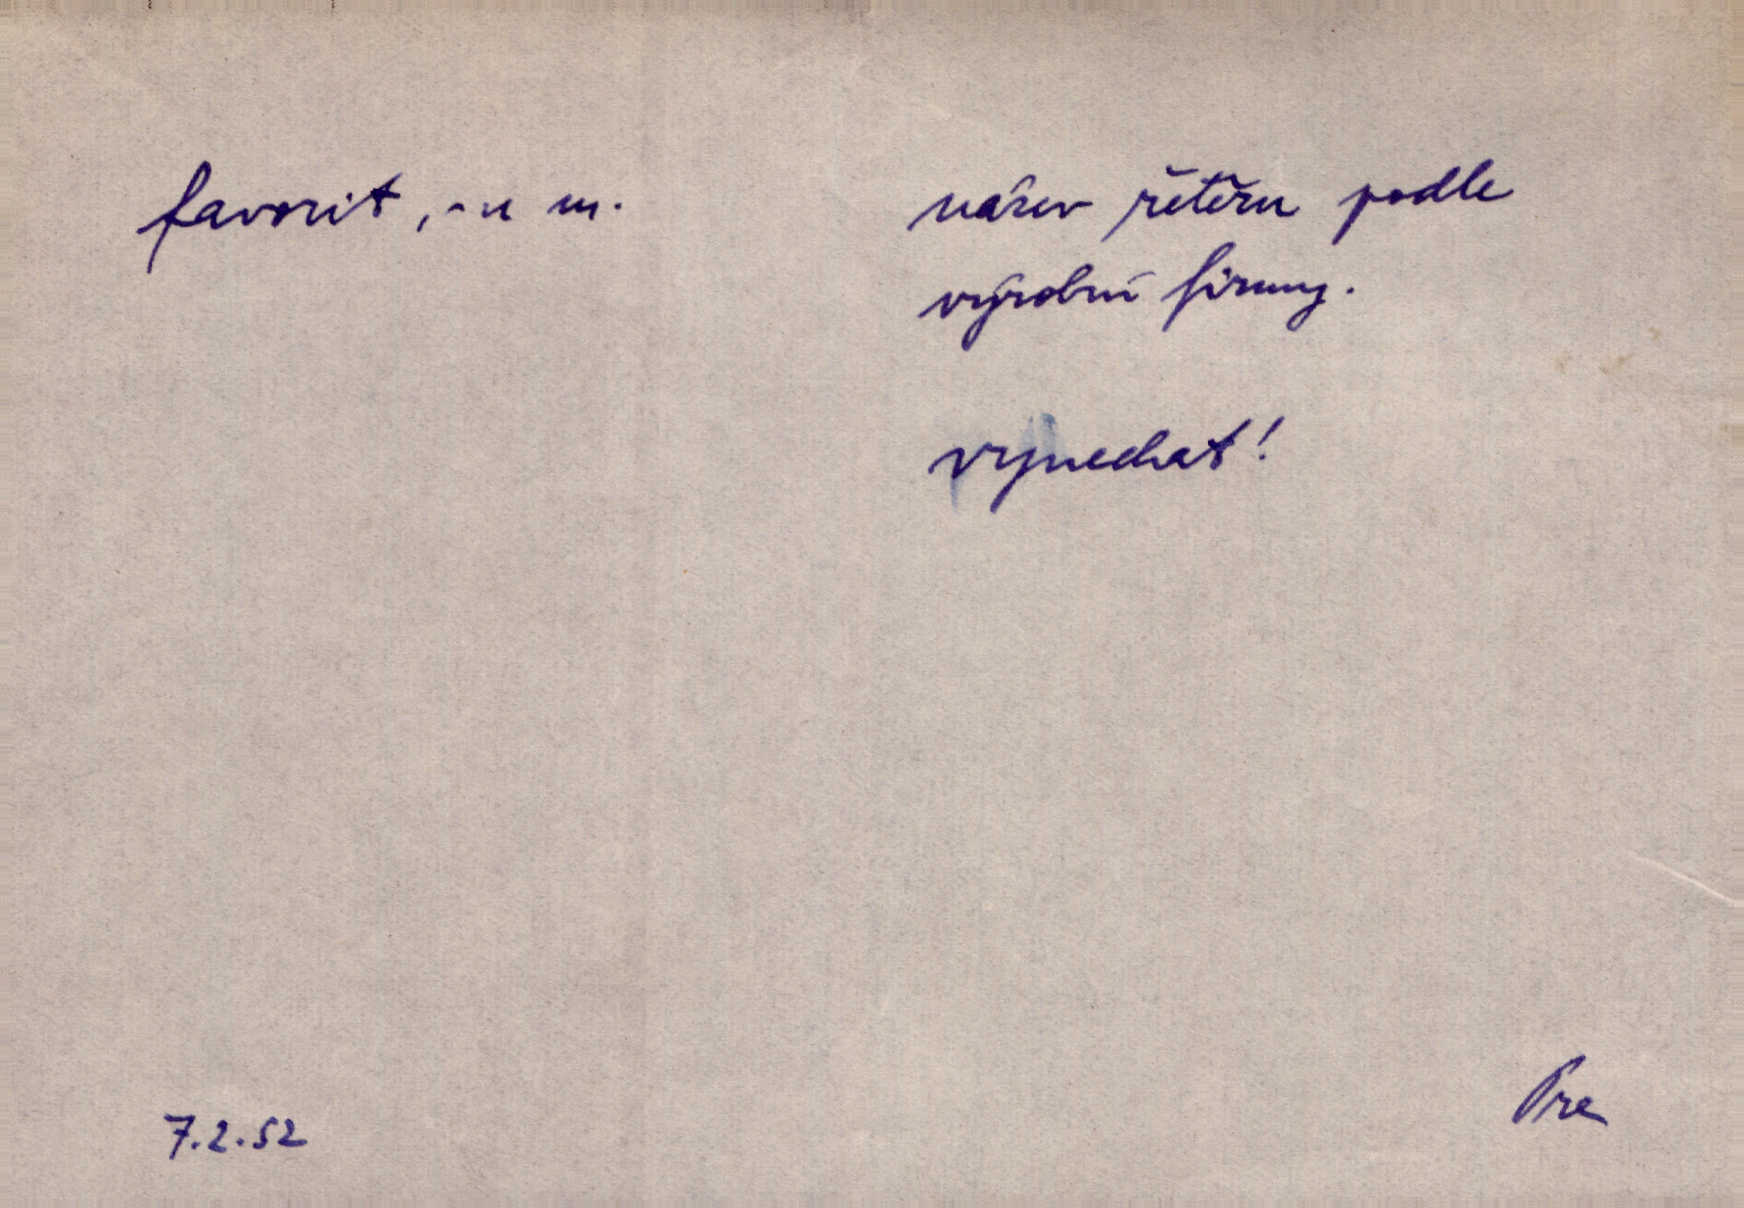 favorit, -u m.
název řetězu podle
výrobní firmy.
vynechat!
7.2.52
Pre